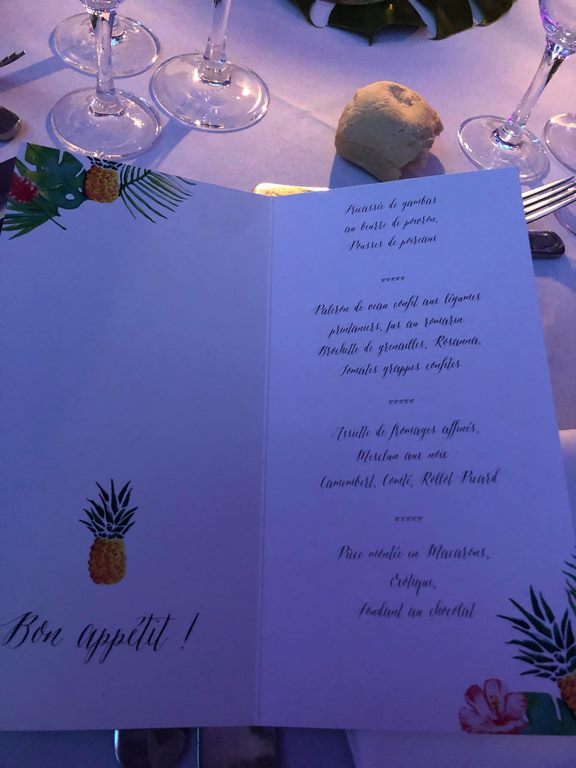 Fricassée de gambas
au beurre de poivron,
Pousses de poireaux
Paleron de veau confit aux légumes
printaniers, jus au romarin
Brochette de grenailles, Rosanna,
Tomates grappes confites
Assiette de fromages affinés,
Mesclun aux noix
Camembert, Comté, Rollot Picard
Pièce montée en Macarons,
Exotique,
Fondant au chocolat
Bon appétit !